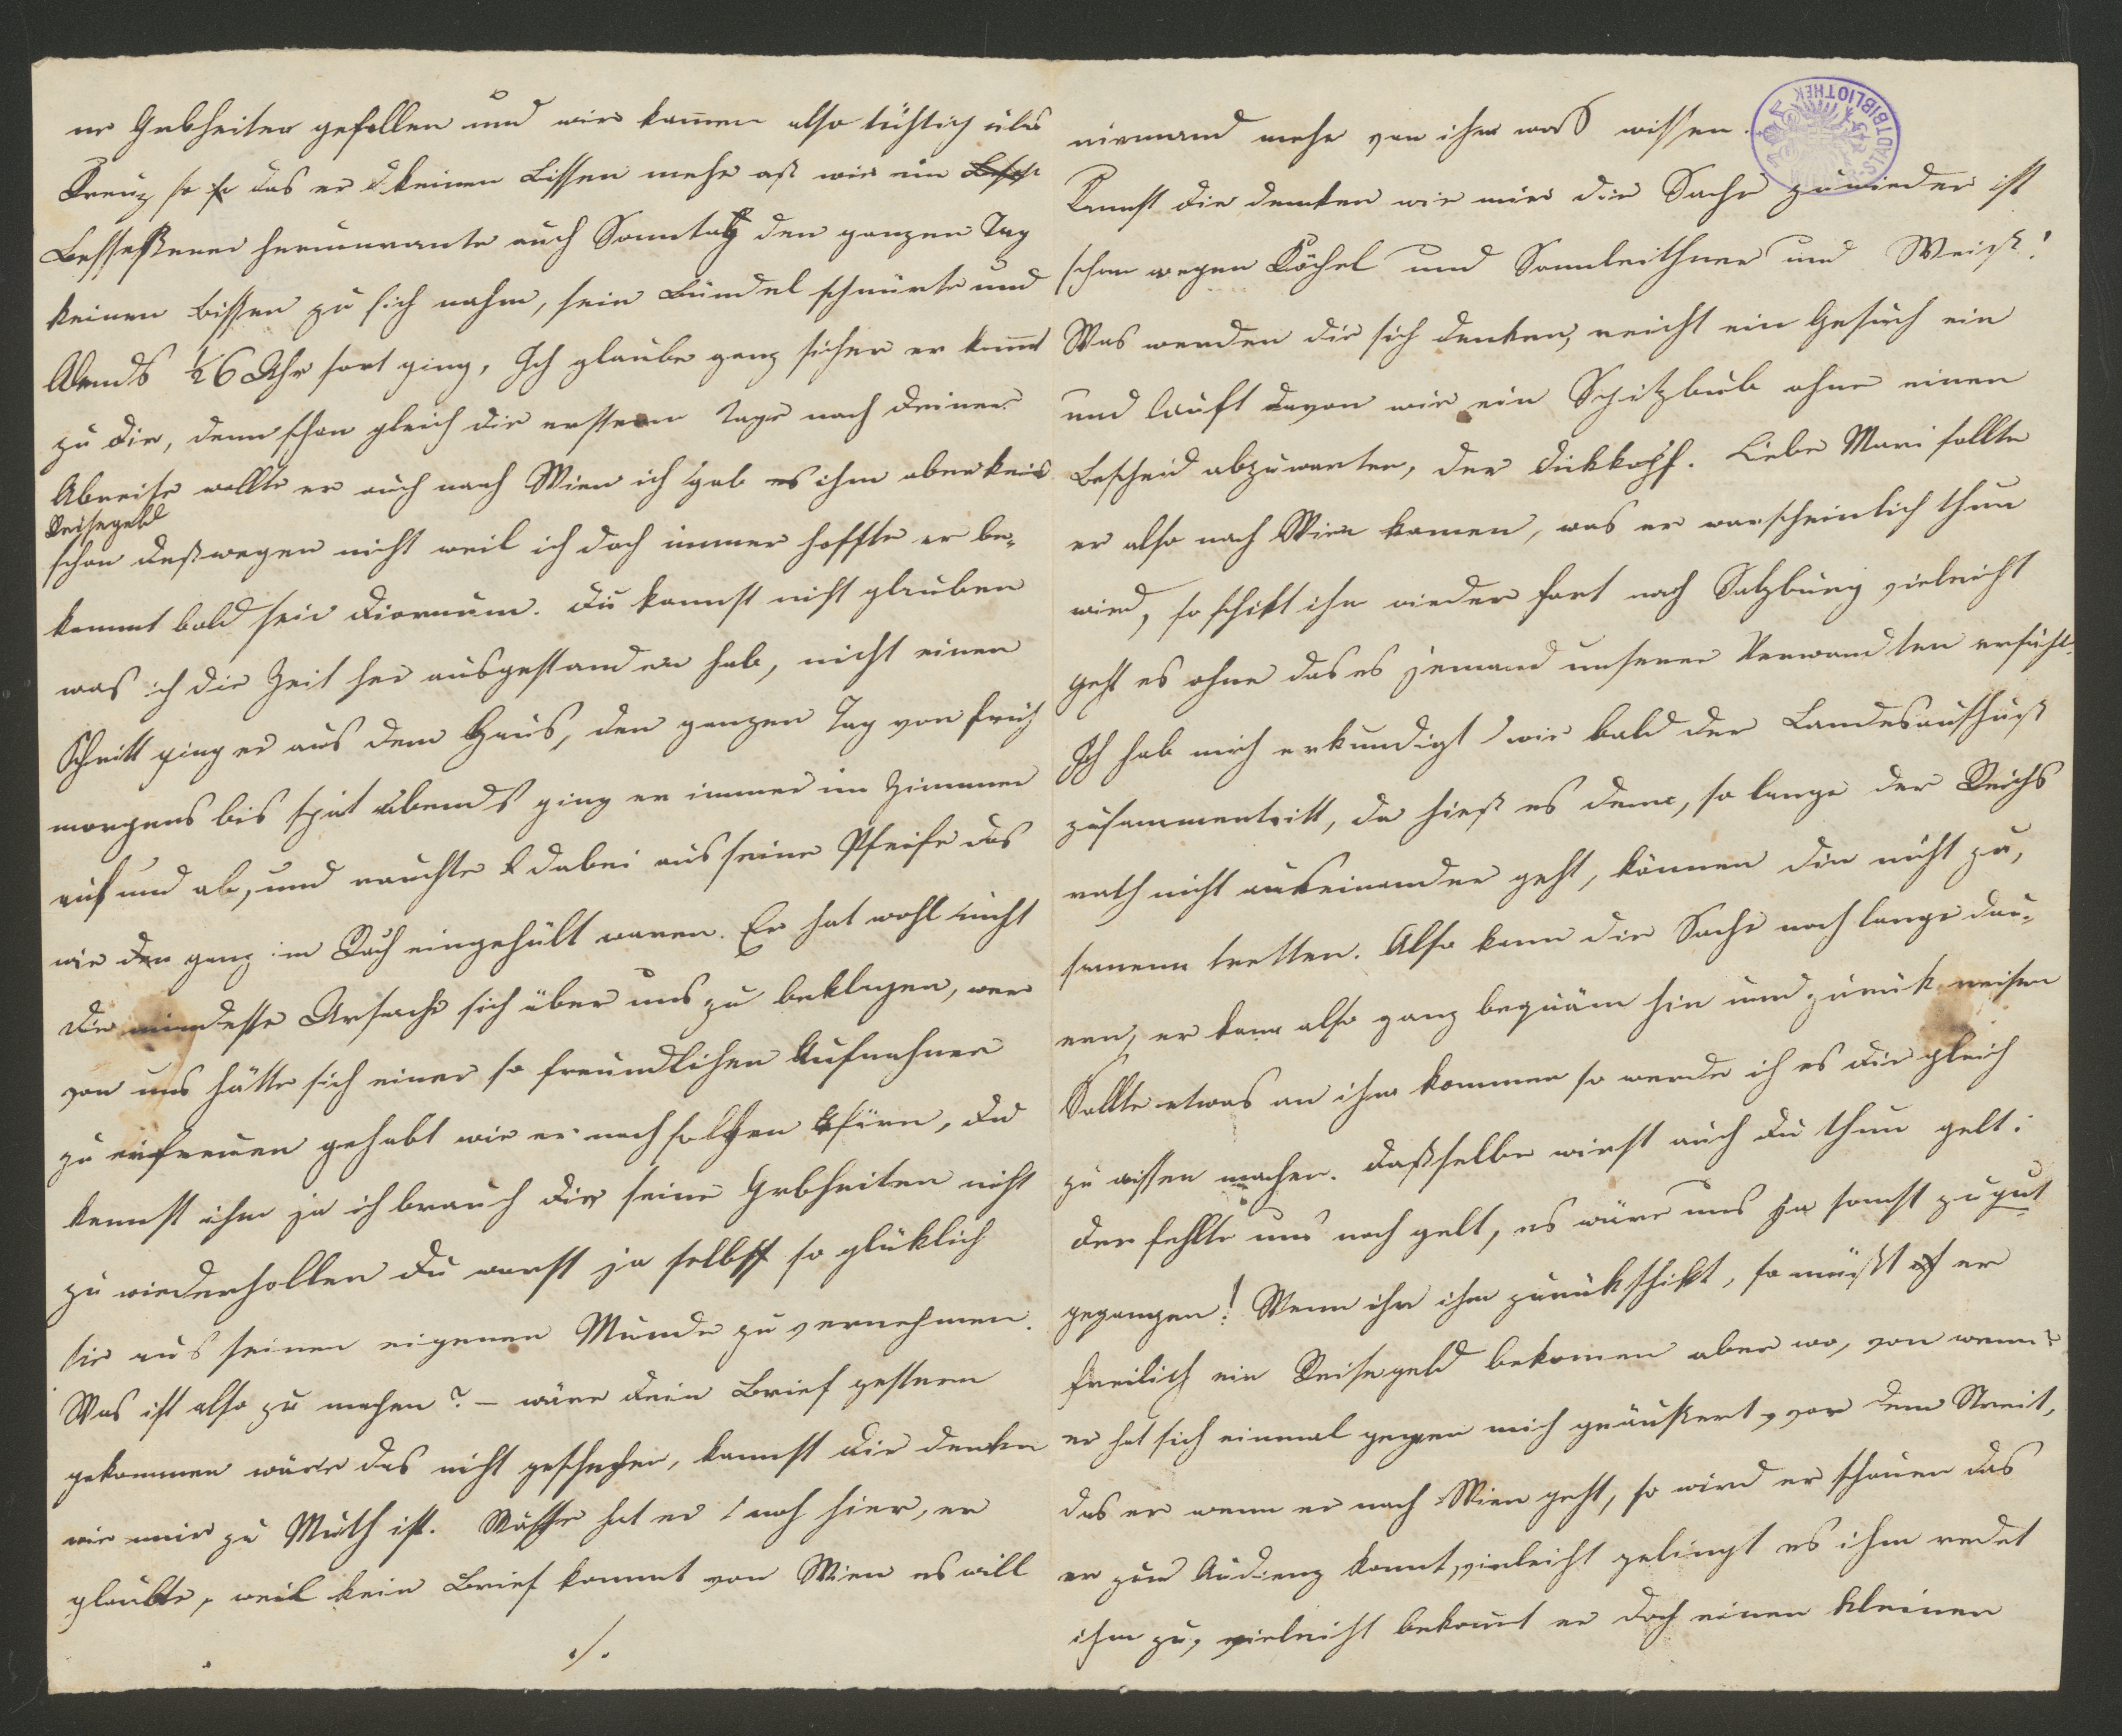 er Grbheiten gefallen und wir kamen also tüchtig übers
Kreuz so so das er keinen Bissen mehr aß wie ein
Besseßener herumrante auch Sonntag den ganzen Tag
keinen Bissen zu sich nahm, sein Bündel schnürte und
Abends ½6 Uhr fort ging, Ich glaube ganz sicher er kommt
zu dir, denn schon gleich die ersteren Tage nach deiner
Abreise wollte er auch nach Wien ich gab es ihm aber kein
Reisegeld
schon deßwegen nicht weil ich doch immer hoffte er be-
kommt bald sein Diornum. Du kannst nicht glauben
was ich die Zeit her ausgestanden hab, nicht einen
Schritt ging er aus dem Haus, den ganzen Tag von früh
morgens bis spät abends ging er immer im Zimmer
auf und ab, und rauchte dabei aus seine Pfeife das
wir den ganz im Rach eingehült waren. Er hat wohl nicht
die mindeste Ursache sich über uns zu beklagen, wer
von uns hätte sich einer so freundlichen Aufnahme
zu erfreuen gehabt wie er nach solchen, du
kennst ihm ja ich brauch dir seine Grbheiten nicht
zu wiederhollen du warst ja selbst so glüklich
sie aus seinen eigenen Munde zu vernehmen.
Was ist also zu machen? – wäre dein Brief gestern
gekommen wäre das nicht geschehen, kannst dir denken
wie mir zu Muth ist. Wäsche hat er noch hier, er
glaubte, weil kein Brief kommt von Wien es will
./.
niemand mehr von ihm was wissen.
Kannst dir denken wie mir die Sache zuwieder ist
schon wegen Köchel und Sonnleithner und Weiß!
Was werden die sich denken, reicht ein Gesuch ein
und lauft davon wie ein Spitzbub ohne einen
Bescheid abzuwarten, der dikkopf. Liebe Mari sollte
er also nach Wien komen, was er warscheinlich thun
wird, so schikt ihn wieder fort nach Salzburg vieleicht
geht es ohne das es jemand unserer Verwandten erfährt.
Ich hab mich erkundigt wie bald der Landesausschuß
zusammentritt, da hieß es denn, so lange der Reichs
rath nicht auseinander geht, können die nicht zu,
samenn tretten. Also kann die Sache noch lange dau-
ern, er kann also ganz bequäm hin und zurük reisen
Sollte etwas an ihm kommen so werde ich es dir gleich
zu wissen machen. Daßselbe wirst auch du thun gelt:
der fehlte uns noch gelt, es wäre uns ja sonst zu gut
gegangen! Wenn ihr ihm zurükschikt, so müßt er
freilich ein Reisegeld bekomen aber wo, von wem?
er hat sich einmal gegen mich geäußert, vor dem Streit,
das er wenn er nach Wien geht, so wird er schauen das
er zur Audienz komt, vieleicht gelingt es ihm redet
ihm zu, vieleicht bekomt er doch einen kleinen
WIENER STADTBIBLIOTHEK